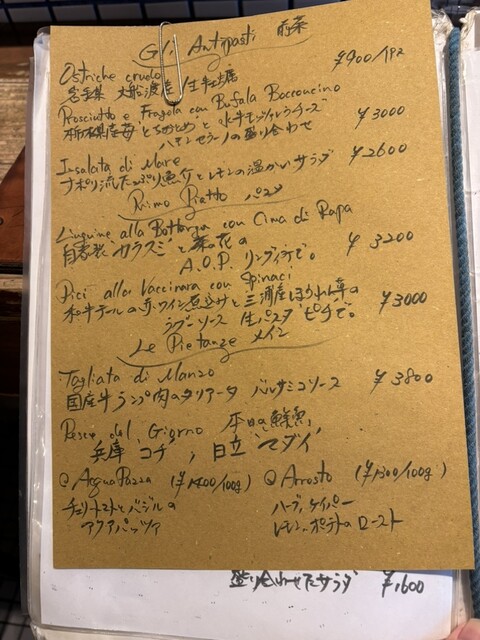 Gli Antipasti 前菜
Ostriche crudo ¥900/1Pz
岩手県 大船渡産 生牡蠣
Prosciutto e Fragola con Bufala Bocconcino
栃木県産苺"とちおとめ"と水牛モッツァレラチーズ ¥3000
ハモンセラーノの盛り合わせ
Insalata di Mare ¥2600
ナポリ流たっぷり魚介とレモンの温かいサラダ
Primo Piatto パスタ
Linguine alla Bottarga con Cima di Rapa
自家製"カラスミ"と菜の花の ¥3200
A.O.P. リングイネで。
Pici alla Vaccinara con Spinaci
和牛テールの赤ワイン煮込みと三浦産ほうれん草の
ラグーソース 生パスタ"ピチ"で。 ¥3000
Le Pietanze メイン
Tagliata di Manzo
国産牛ランプ肉のタリアータ バルサミコソース ¥3800
Pesce del Giorno 本日の鮮魚
兵庫"コチ"、日立"マダイ"
@Acqua Pazza (¥1400/100g) @Arosto (¥1300/100g)
チェリートマトとバジルの ハーブ、ケイパー
アクアパッツァ レモン、ポテトのロースト
盛り合わせたサラダ ¥1,600